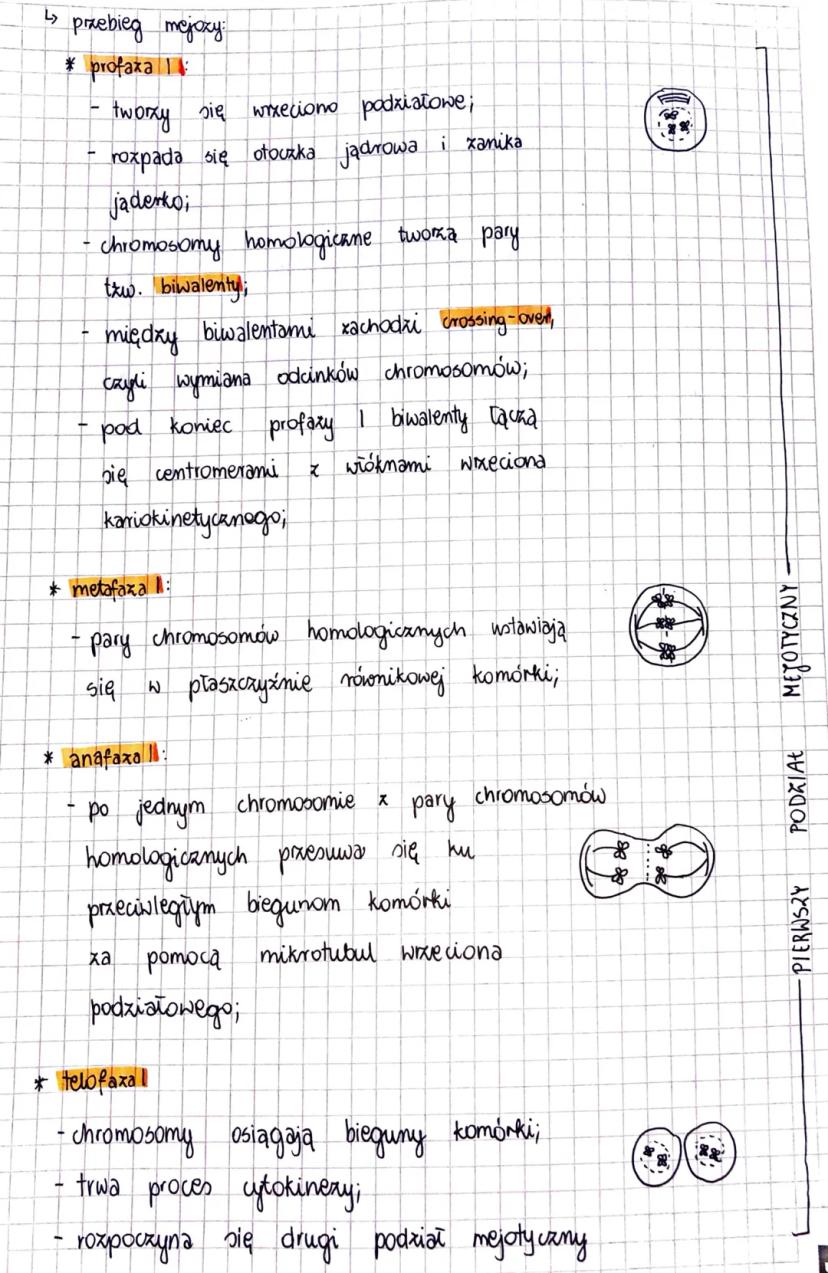 ↳ przebieg mejozy:
* profaza I:
- tworzy się wrzeciono podziałowe;
- rozpada się otoczka jądrowa i zanika
jąderko;
- chromosomy homologiczne tworzą pary
tzw. biwalenty;
- między biwalentami zachodzi crossing-over,
czyli wymiana odcinków chromosomów;
- pod koniec profazy I biwalenty łączą
się centromerami z włóknami wrzeciona
kariokinetycznego;
* metafaza I:
- pary chromosomów homologicznych wstawiają
się w płaszczyźnie równikowej komórki;
* anafaza I:
- po jednym chromosomie z pary chromosomów
homologicznych przesuwa się ku
przeciwległym biegunom komórki
za pomocą mikrotubul wrzeciona
podziałowego;
* telofaza I
- chromosomy osiągają bieguny komórki;
- trwa proces cytokinezy;
- rozpoczyna się drugi podział mejotyczny
PIERWSZY PODZIAŁ MEJOTYCZNY